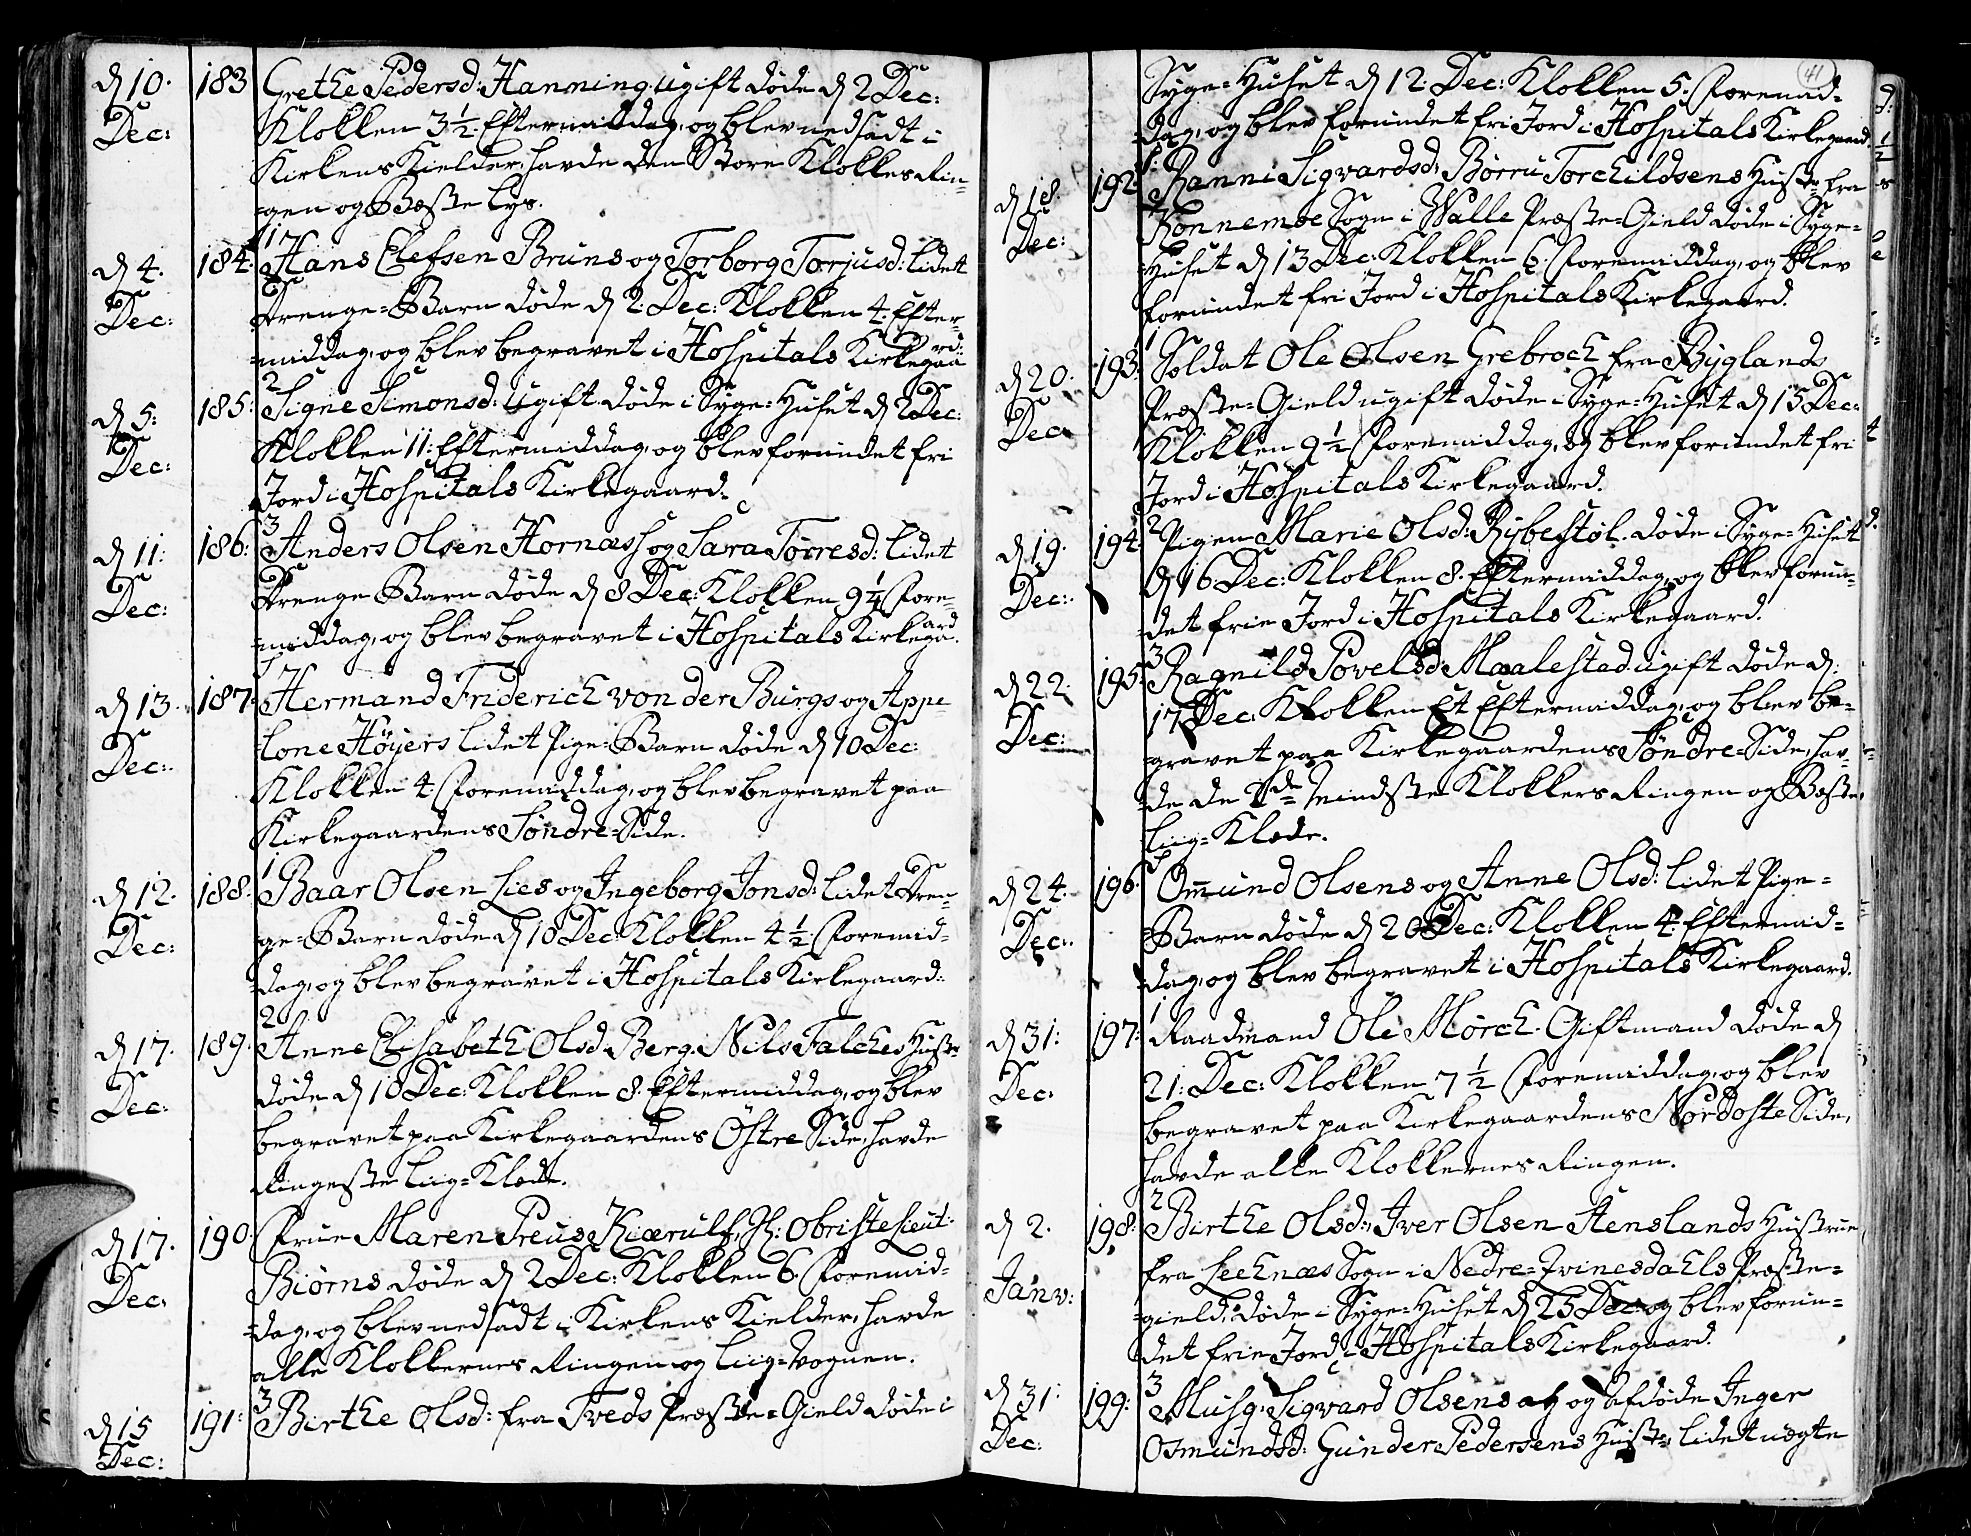 d 10.
Dec:
183
Grethe Pedersd: Hanning, ugift døde d 2 Dec:
Klokken 3½ Eftermiddag, og blev nedsadt i
Kirkens Kielder, havde den Store Klokkes Rin-
=gen og Beste Lys.
1
d 4.
Dec:
184:
Hans Elefsen Bruns og Torborg Torjusd: lidet
Drenge=Barn døde d 2. Dec: Klokken 4. Efter-
=middag, og blev begravet i Hospitals Kirkegaard:
2
d 5:
Dec:
185:
Signe Simonsd: ugift døde i Syge=Huset d 2 Dec:
Klokken 11: Eftermiddag, og blev forundet fri
Jord i Hospitals Kirkegaard.
3
d 11:
Dec:
186:
Anders Olsen Hornæss og Sara Torresd: lidet
Drenge Barn døde d 8 Dec: Klokken 9¼ Fore-
=middag, og blev begravet i Hospitals Kirkegaard.
1
d 13.
Dec:
187:
Hermand Friderich von der Burgs og Appe-
lone Höyers lidet Pige=Barn døde d 10 Dec:
Klokken 4 Foremiddag, og blev begravet paa
Kirkegaardens Søndre=Side.
1
d 12.
Dec:
188:
Baar Olsen Lies og Ingeborg Jonsd: lidet Dren-
ge=Barn døde d 10 Dec: Klokken 4½ Foremid-
=dag, og blev begravet i Hospitals Kirkegaard:
2
d 17.
Dec:
189.
Anne Elisabeth Olsd: Berg, Nils Falches Hustr:
døde d 10 Dec: Klokken 8. Eftermiddag, og blev
begravet paa Kirkegaardens Östre Side, havde
Ringeste Liig=Klæde.
d 17.
Dec:
190.
Frue Maren Preus Kiærulf, H: Obristelieut:
Biørns døde d 2 Dec: Klokken 6. Foremid-
=dag, og blev nedsadt i Kirkens Kielder, havde
alle Klokkernes Ringen og Liig=Vognen.
3
d 15
Dec:
191:
Birthe Olsd: fra Tveds Præste=Gield døde i
41
Syge=Huset d 12. Dec: Klokken 5. Foremid-
=dag, og blev forundet fri Jord i Hospitals Kirkegaard
d 18.
Dec:
192:
Ranni Sigvardsd: Børru Torchildsens Hustr: fra
Konnemoe Sogn i Walle Præste=Gield døde i Syge=
=Huset d 13 Dec: Klokken 6. Foremiddag, og blev
forundet fri Jord i Hospitals Kirkegaard.
1
d 20.
Dec.
193:
Soldat Ole Olsen Grebroch fra Byglands
Præste=Gield ugift døde i Syge=Huset d 15 Dec:
Klokken 9½ Foremiddag, og blev forundet fri
Jord i Hospitals Kirkegaard.
2
d 19.
Dec:
194:
Pigen Marie Olsd: Rybestøl. døde i Syge=Huset
d 16 Dec: Klokken 8. Eftermiddag, og blev forun-
=det frie Jord i Hospitals Kirkegaard.
3
d 22.
Dec:
195:
Ragnild Povelsd: Maalestad ugift døde d:
17 Dec: Klokken Et Eftermiddag, og blev be-
gravet paa Kirkegaardens Søndre=Side, hav-
de de 2de Mindste Klokkers Ringen og Beste
Liig=Klæde.
d 24.
Dec:
196.
Omund Olsens og Anne Olsd: lidet Pige=
=Barn døde d 20 Dec: Klokken 4 Eftermid=
=dag, og blev begravet i Hospitals Kirkegaard.
1
d 31:
Dec.
197:
Raadmand Ole Mørch. Giftmand døde d
21: Dec: Klokken 7½ Foremiddag, og blev
begravet paa Kirkegaardens Nordoste Side,
havde alle Klokkernes Ringen.
2
d 2.
Janv:
198:
Birthe Olsd:, Iver Olsen Stenslands Hustrue
fra Lechnæs Sogn i Nedre=Qvinesdahls Præste=
=gield, døde i Syge=Huset d 25 Dec: og blev forun=
det frie Jord i Hospitals Kirkegaard.
3
d 31:
Dec:
199:
Musq: Sigvard Olsens og afdøde Inger
Osmundsd: Gunder Pedersens Hustr: lidet uægte